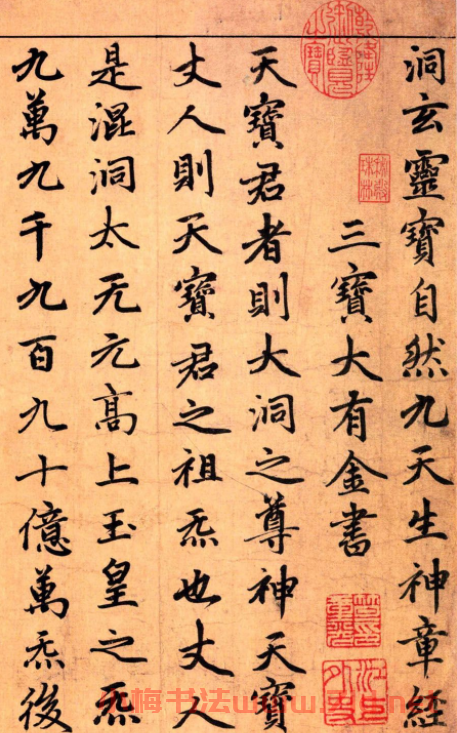 洞玄靈寶自然九天生神章經
三寶大有金書
天寶君者則大洞之尊神天寶
丈人則天寶君之祖炁也丈人
是混洞太无元高上玉皇之炁
九萬九千九百九十億萬炁後
梅书法